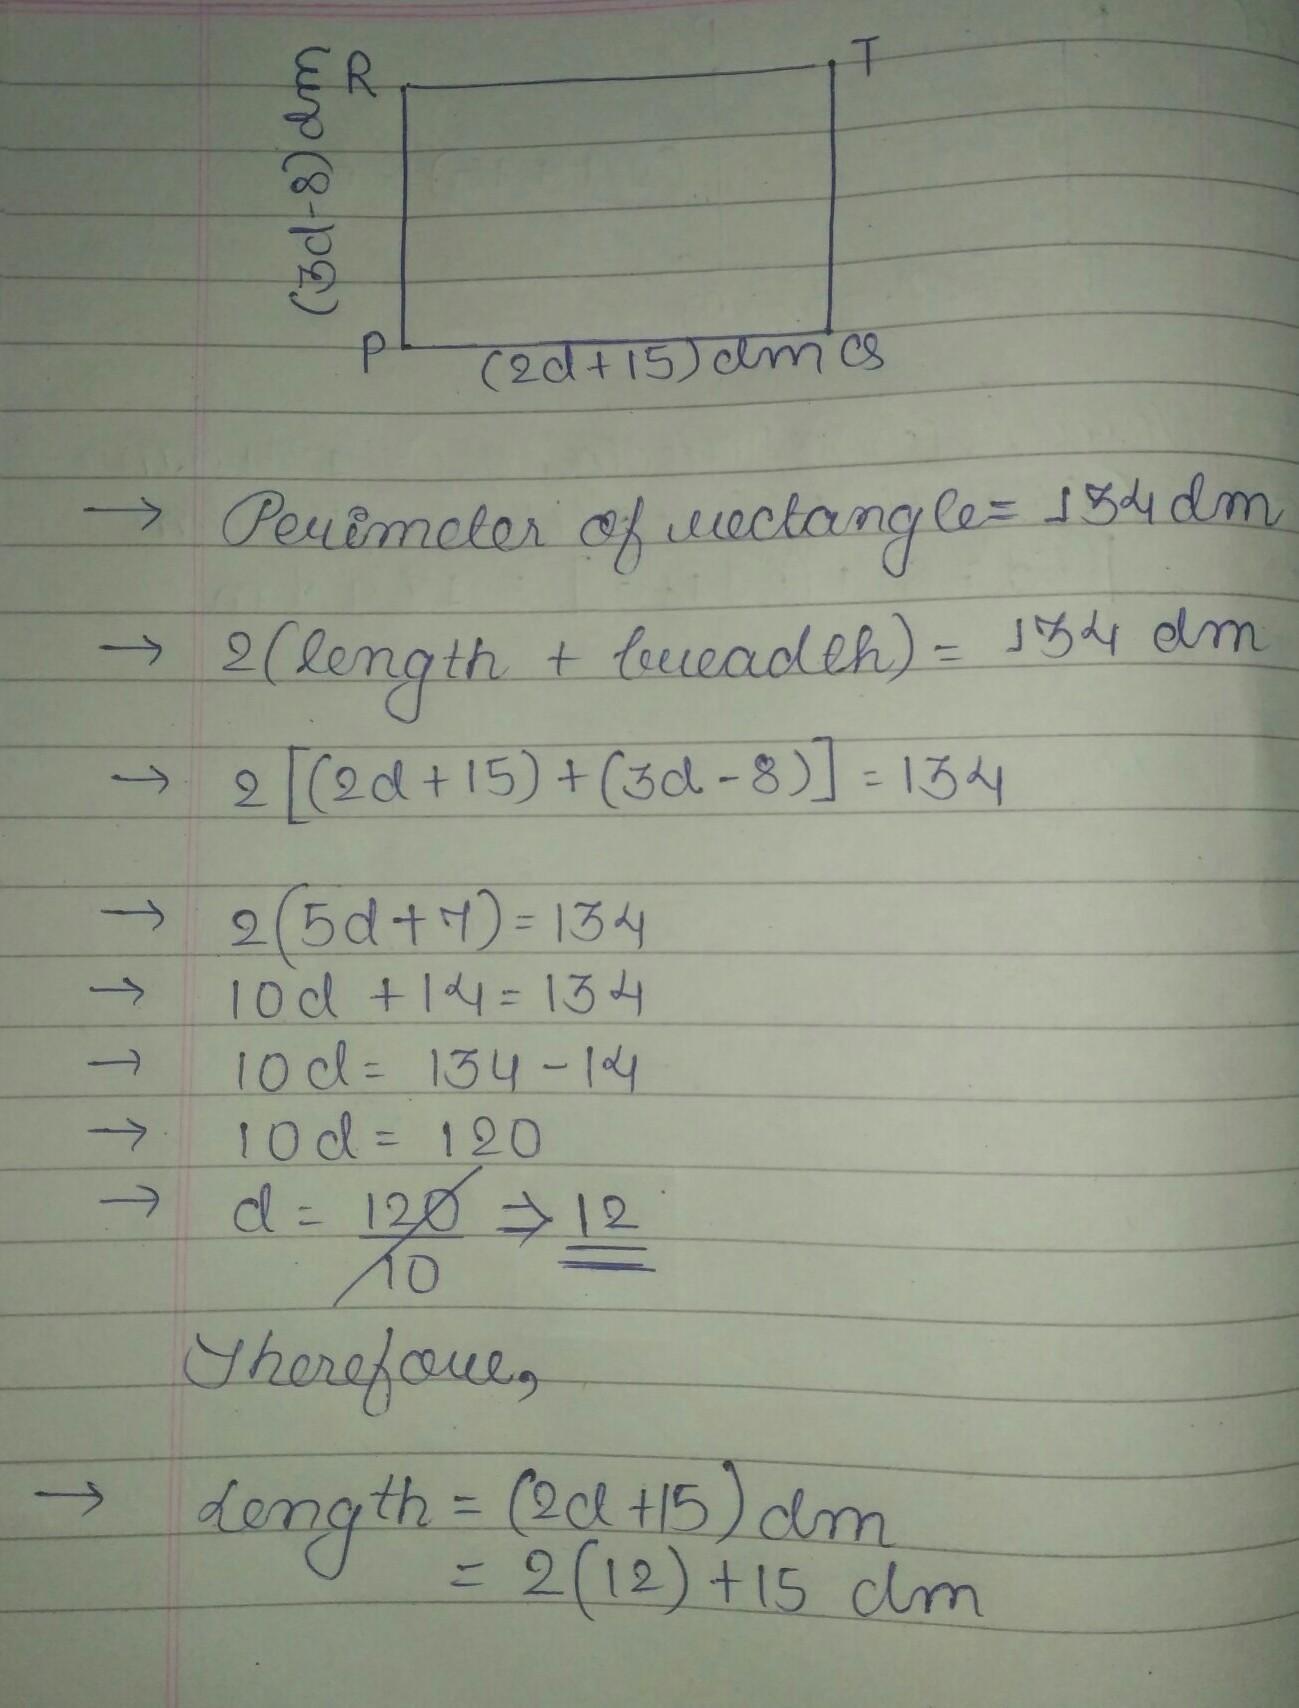 R
T
(3d-8)dm
P
(2d+15)dm
→ Perimeter of rectangle = 134 dm
→ 2(length + breadth) = 134 dm
→ 2[(2d+15)+(3d-8)] = 134
→ 2(5d+7) = 134
→ 10d + 14 = 134
→ 10d = 134 - 14
→ 10d = 120
→ d = 120/10 ⇒ 12
Therefore,
→ Length = (2d+15) dm
= 2(12) + 15 dm